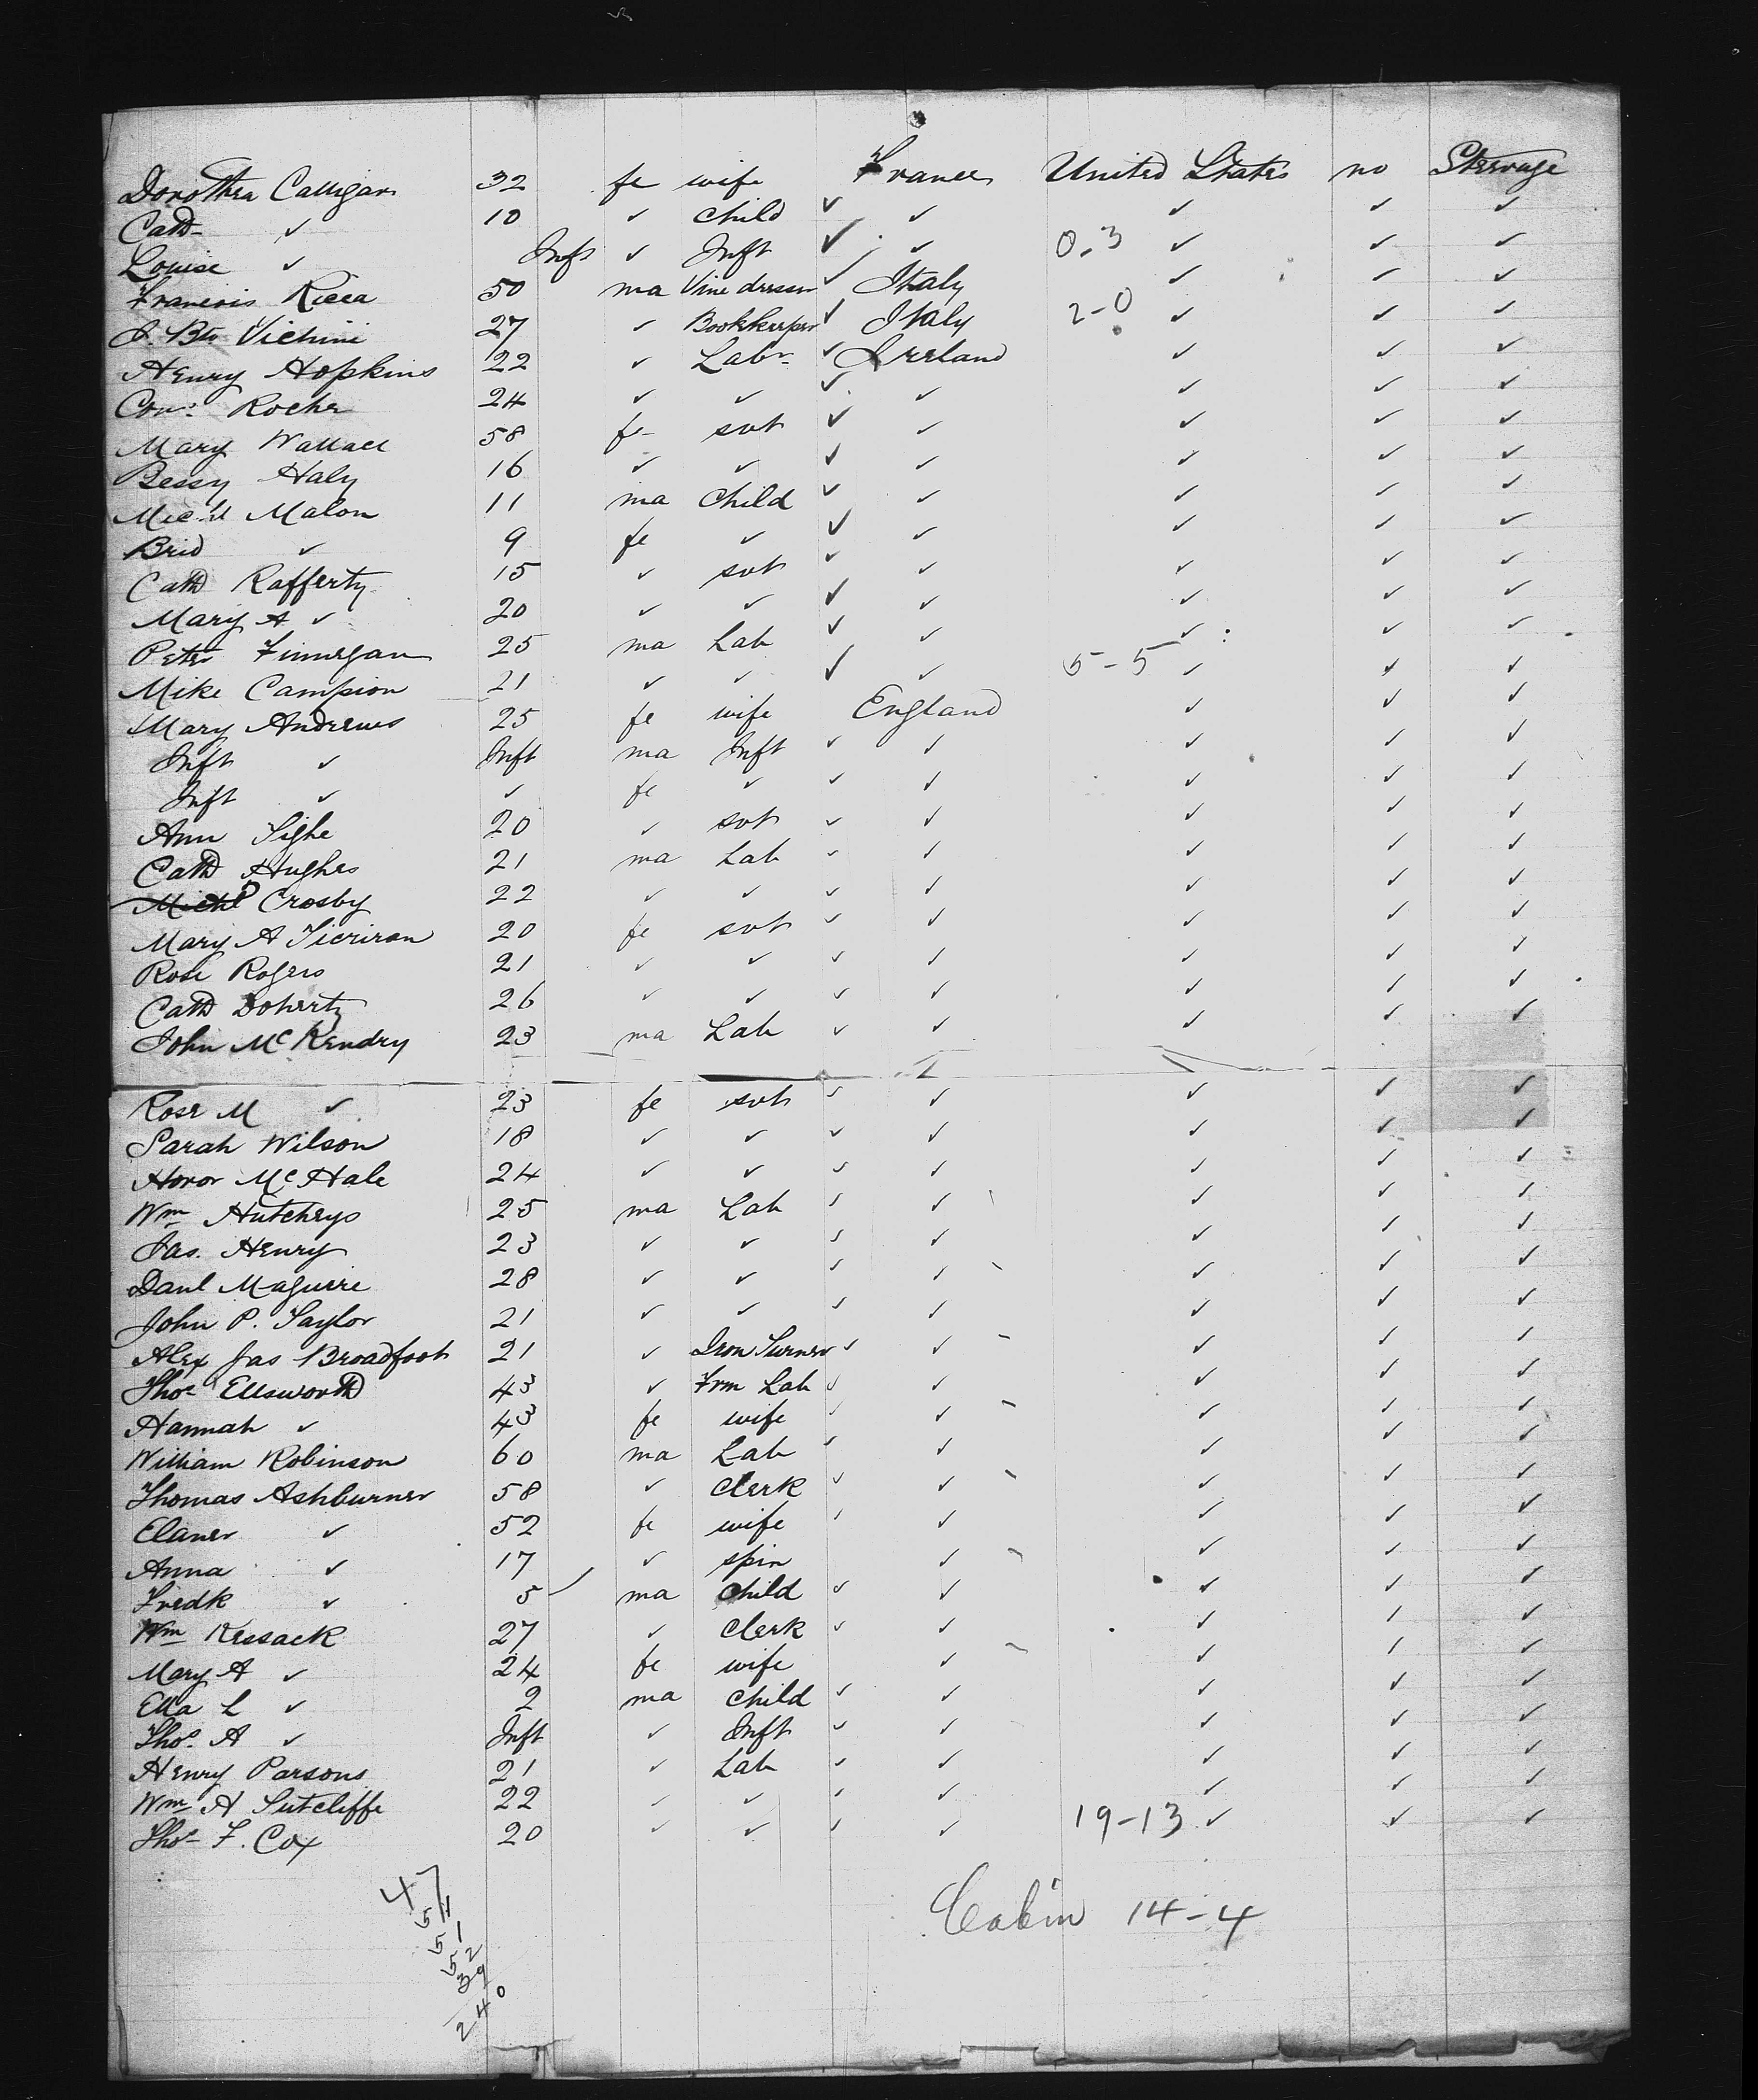 Dorothea Calligan 32 fe wife France United States no Steerage
Cath ✓ 10 ✓ child ✓ ✓ ✓ ✓ ✓
Louise ✓ Inft ✓ Inft ✓ ✓ 0-3 ✓ ✓ ✓
Francois Ricca 50 ma Vine dresser ✓ Italy ✓ ✓ ✓
J. Bte Vichini 27 ✓ Bookkeeper ✓ Italy 2-0 ✓ ✓ ✓
Henry Hopkins 22 ✓ Labr ✓ Ireland ✓ ✓ ✓
Con: Roche 24 ✓ ✓ ✓ ✓ ✓ ✓ ✓
Mary Wallace 58 fe svt ✓ ✓ ✓ ✓ ✓
Bessy Haly 16 ✓ ✓ ✓ ✓ ✓ ✓ ✓
Mich'l Malon 11 ma Child ✓ ✓ ✓ ✓ ✓
Brid ✓ 9 fe ✓ ✓ ✓ ✓ ✓ ✓
Cath Rafferty 15 ✓ svt ✓ ✓ ✓ ✓ ✓
Mary A ✓ 20 ✓ ✓ ✓ ✓ ✓ ✓ ✓
Peter Finnegan 25 ma Lab ✓ ✓ ✓ ✓ ✓
Mike Campion 21 ✓ ✓ ✓ ✓ 5-5 ✓ ✓ ✓
Mary Andrews 25 fe wife England ✓ ✓ ✓
Inft ✓ Inft ma Inft ✓ ✓ ✓ ✓ ✓
Inft ✓ ✓ fe ✓ ✓ ✓ ✓ ✓ ✓
Ann Tighe 20 ✓ svt ✓ ✓ ✓ ✓ ✓
Cath Hughes 21 ma Lab ✓ ✓ ✓ ✓ ✓
Michl Crosby 22 ✓ ✓ ✓ ✓ ✓ ✓ ✓
Mary A 20 fe svt ✓ ✓ ✓ ✓ ✓
Rose Rogers 21 ✓ ✓ ✓ ✓ ✓ ✓ ✓
Cath Doherty 26 ✓ ✓ ✓ ✓ ✓ ✓ ✓
John McKendry 23 ma Lab ✓ ✓ ✓ ✓ ✓
Rose M ✓ 23 fe svt ✓ ✓ ✓ ✓ ✓
Sarah Wilson 18 ✓ ✓ ✓ ✓ ✓ ✓ ✓
Honor McHale 24 ✓ ✓ ✓ ✓ ✓ ✓ ✓
Wm Hutchrys 25 ma Lab ✓ ✓ ✓ ✓ ✓
Jas. Henry 23 ✓ ✓ ✓ ✓ ✓ ✓ ✓
Danl Maguire 28 ✓ ✓ ✓ ✓ ✓ ✓ ✓
John P. Taylor 21 ✓ ✓ ✓ ✓ ✓ ✓ ✓
Alex Jas Broadfoot 21 ✓ Iron Turner ✓ ✓ ✓ ✓ ✓
Thos Ellsworth 43 ✓ Frm Lab ✓ ✓ ✓ ✓ ✓
Hannah ✓ 43 fe wife ✓ ✓ ✓ ✓ ✓
William Robinson 60 ma Lab ✓ ✓ ✓ ✓ ✓
Thomas Ashburner 58 ✓ Clerk ✓ ✓ ✓ ✓ ✓
Elaner ✓ 52 fe wife ✓ ✓ ✓ ✓ ✓
Anna ✓ 17 ✓ spin ✓ ✓ ✓ ✓
Fredk ✓ 5 ma Child ✓ ✓ ✓ ✓ ✓
Wm Kessack 27 ✓ Clerk ✓ ✓ ✓ ✓ ✓
Mary A ✓ 24 fe wife ✓ ✓ ✓ ✓
Ella L ✓ 2 ma child ✓ ✓ ✓ ✓ ✓
Thos A ✓ Inft ✓ Inft ✓ ✓ ✓ ✓ ✓
Henry Parsons 21 ✓ Lab ✓ ✓ ✓ ✓ ✓
Wm A Sutcliffe 22 ✓ ✓ ✓ ✓ ✓ ✓ ✓
Thos F. Cox 20 ✓ ✓ ✓ ✓ 19-13 ✓ ✓ ✓
47
51
51
52
39
240
Cabin 14-4